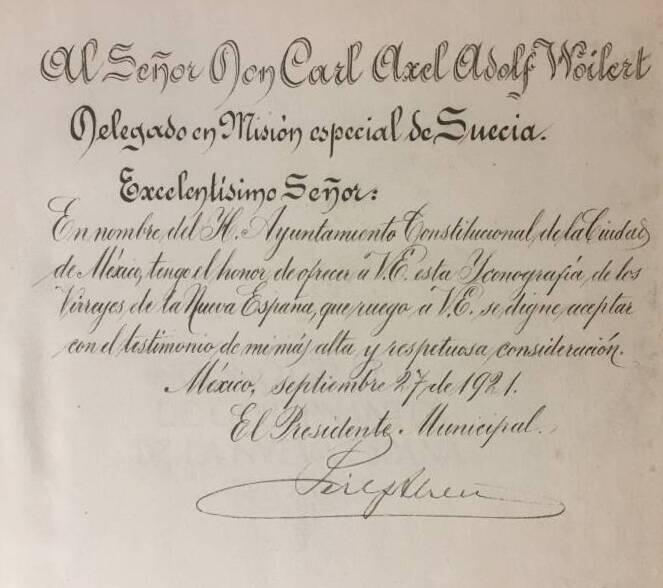 Al Señor Don Carl Axel Adolf Woilert
Delegado en Misión especial de Suecia.
Excelentísimo Señor:
En nombre del H. Ayuntamiento Constitucional de la Ciudad
de México, tengo el honor de ofrecer á V.E. esta Yconografía de los
Virreyes de la Nueva España, que ruego á V.E. se digne aceptar
con el testimonio de mi más alta y respetuosa consideración.
México, septiembre 27 de 1921.
El Presidente Municipal.